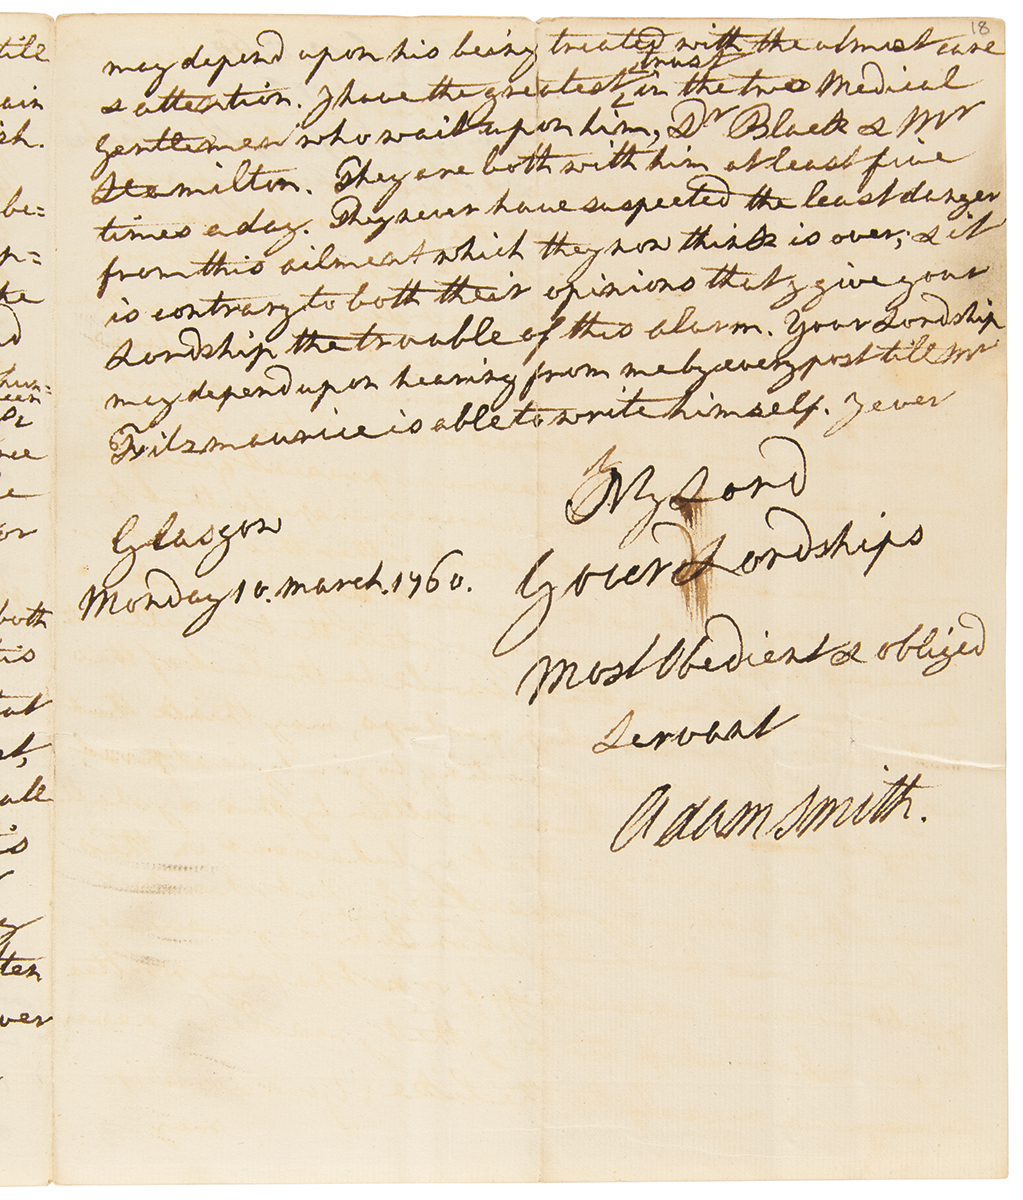 18
may depend upon his being treated with the utmost care
& attention. I have the greatest trust in the two Medical
Gentlemen who wait upon him, Dr Black & Mr
Hamilton. They are both with him at least five
times a day. They never have suspected the least danger
from this ailment which they now think is over; & it
is contrary to both their opinions that I give your
Lordship the trouble of this alarm. Your Lordship
may depend upon hearing from me by every post till Mr
Fitzmaurice is able to write himself. I ever
My Lord
Your Lordships
Most Obedient & obliged
Servant
Adam Smith.
Glasgow
Monday 10. March. 1760.
tile
ain
sh.
be=
he
both
his
all
ten
ver